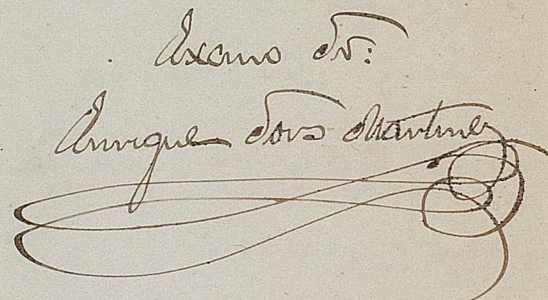 Excmo Sr:
Enrique Dors Martinez